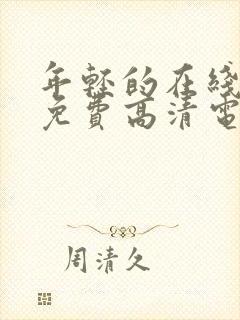 年轻的在綫
免費高清電
周清久